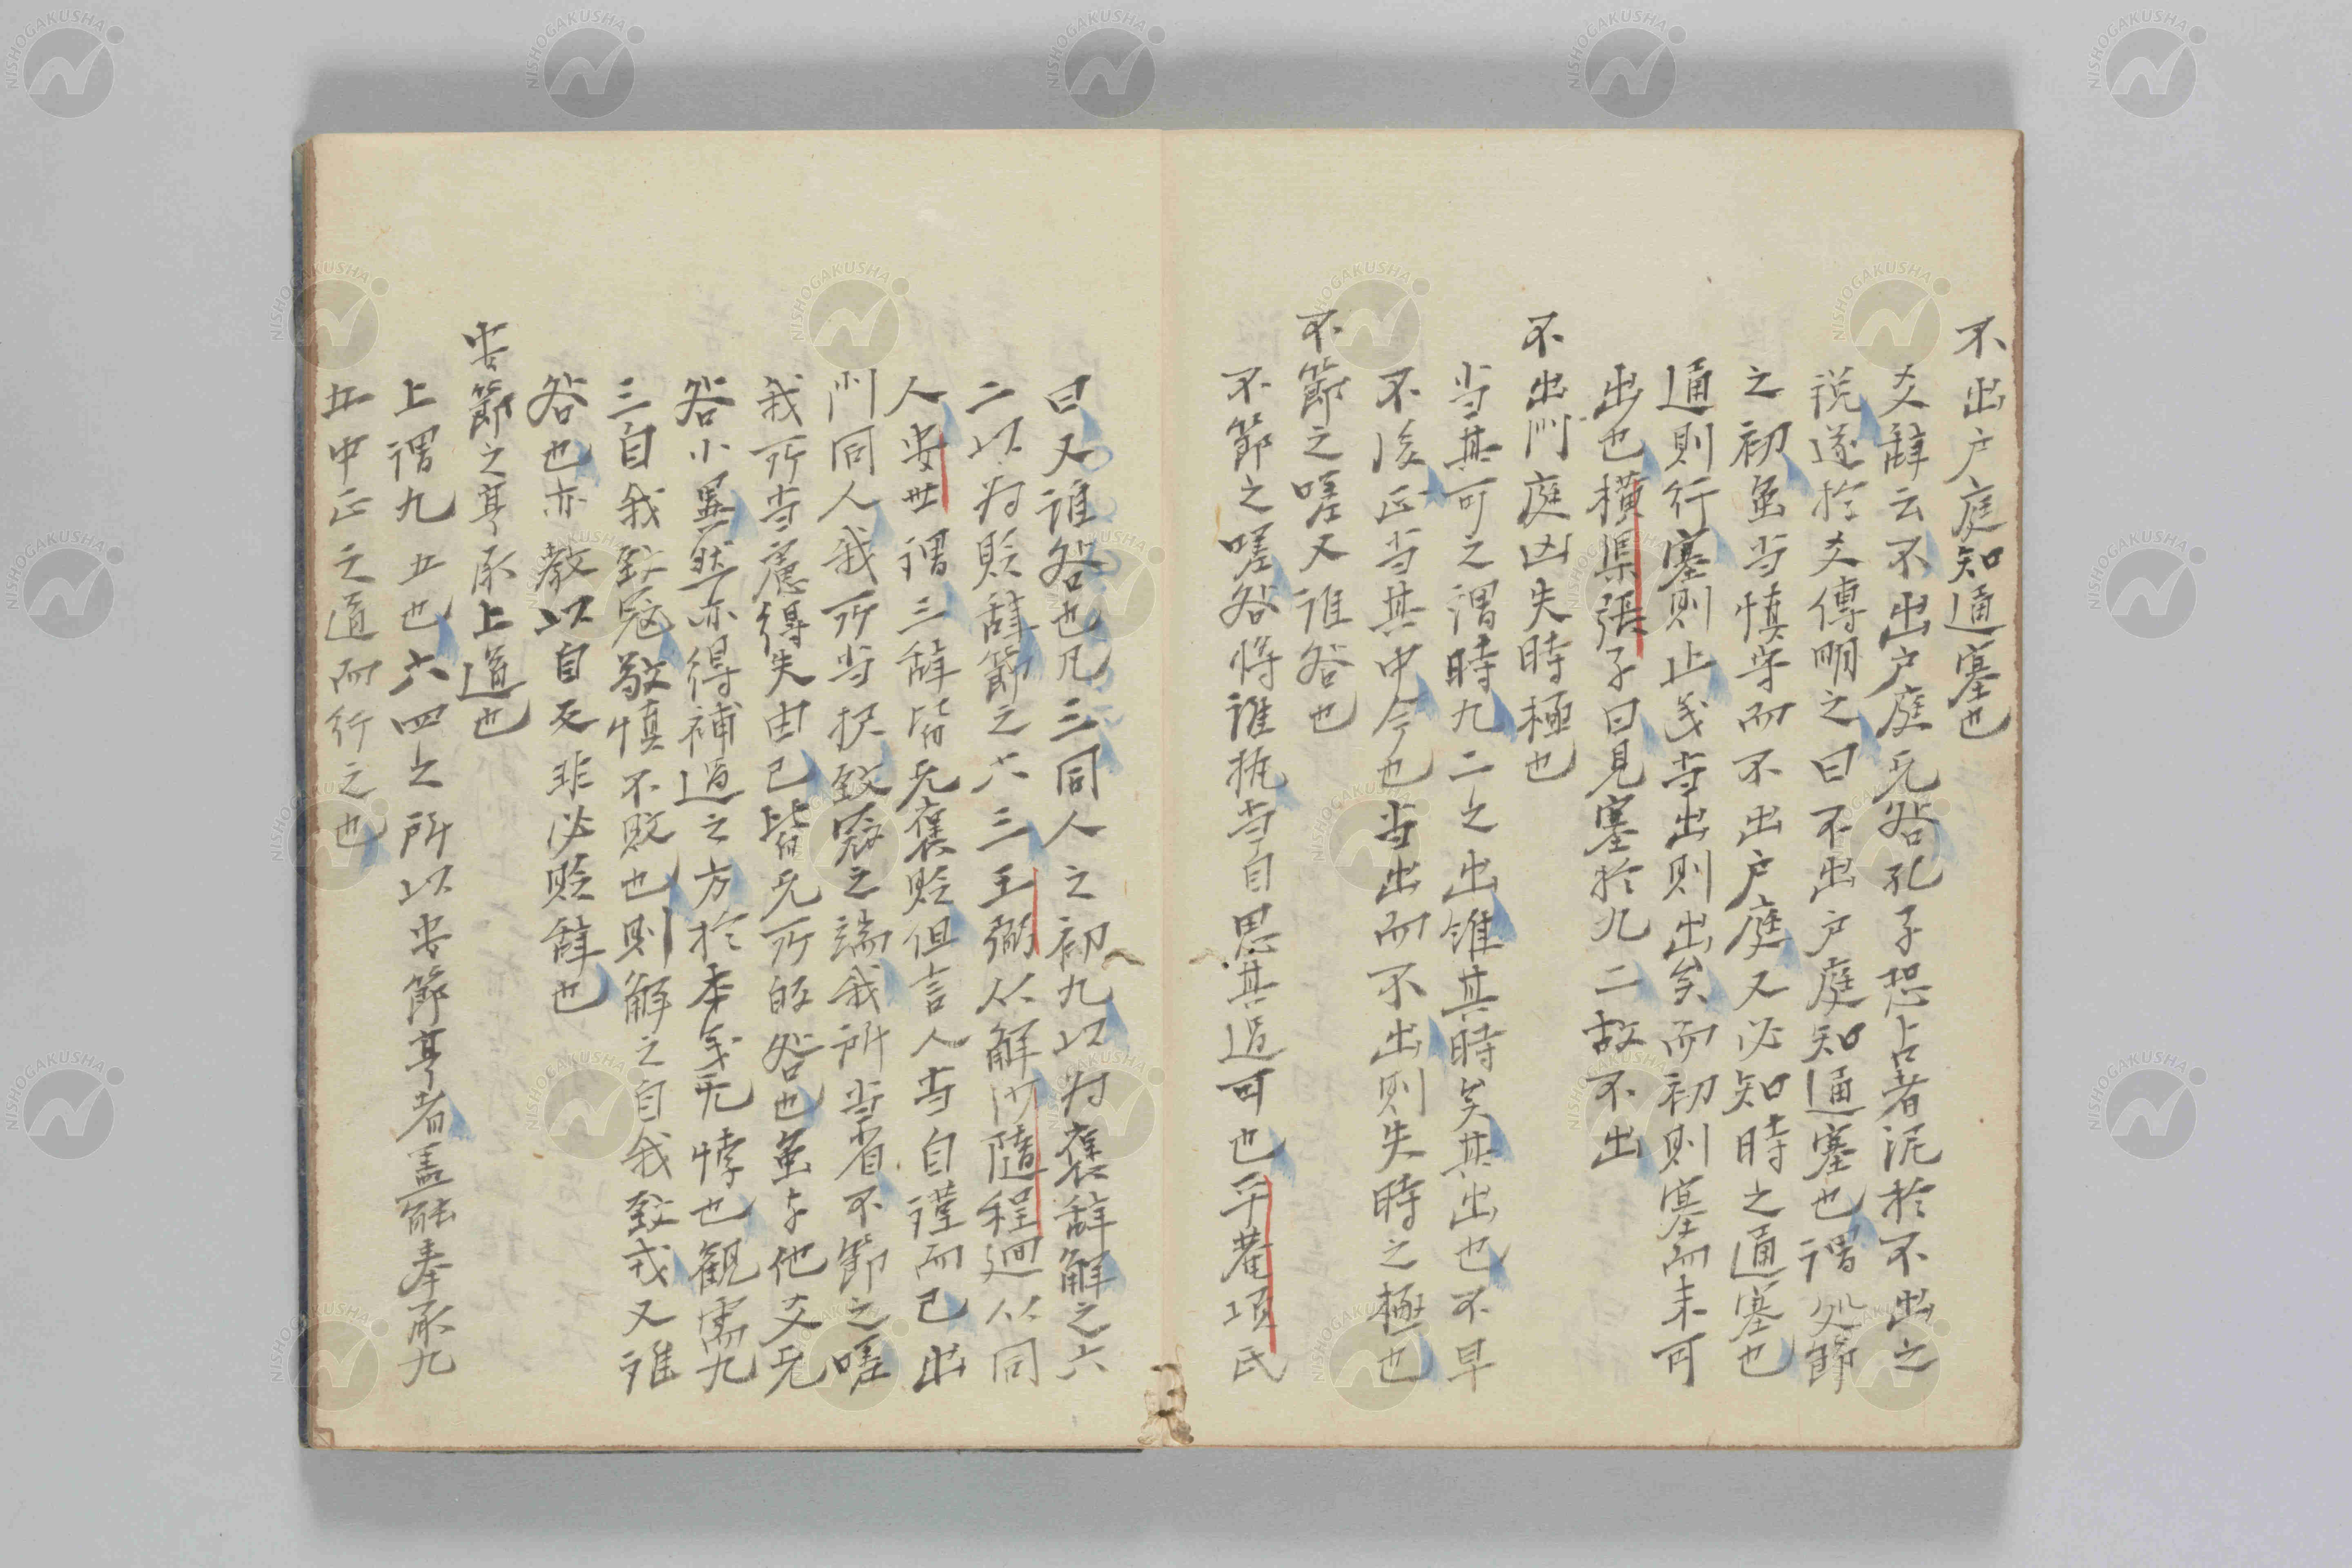 不出户庭知通塞也
爻辞云不出户庭无咎孔子恐占者泥於不出之
説遂於爻傳明之曰不出户庭知通塞也謂処節
之初虽当慎守而不出户庭又必知時之通塞也
通則行塞則止矣当出則出矣而初則塞而未可
出也横渠張子曰見塞於九二故不出
不出門庭凶失時極也
当其可之謂時九二之出雖其時矣其出也不早
不後正当其中今也当出而不出則失時之極也
不節之嗟又誰咎也
不節之嗟咎将誰執当自思其過可也平菴項氏
曰又誰咎也凡三同人之初九以为褒辞解之六
二以为貶辞節之六三王弼从解沙隨程迥从同
人安世謂三辞皆无褒貶但言人当自謹而已出
門同人我所当択致寇之端我所当省不節之嗟
我所当慮得失由已皆无所的咎也虽与他爻无
咎小異然亦得補過之方於本義无悖也観需九
三自我致寇敬慎不敗也則解之自我致戎又誰
咎也亦教以自反非必貶辞也
安節之亨承上道也
上謂九五也六四之所以安節亨者盖能奉承九
五中正之道而行之也
NISHOGAKUSHA